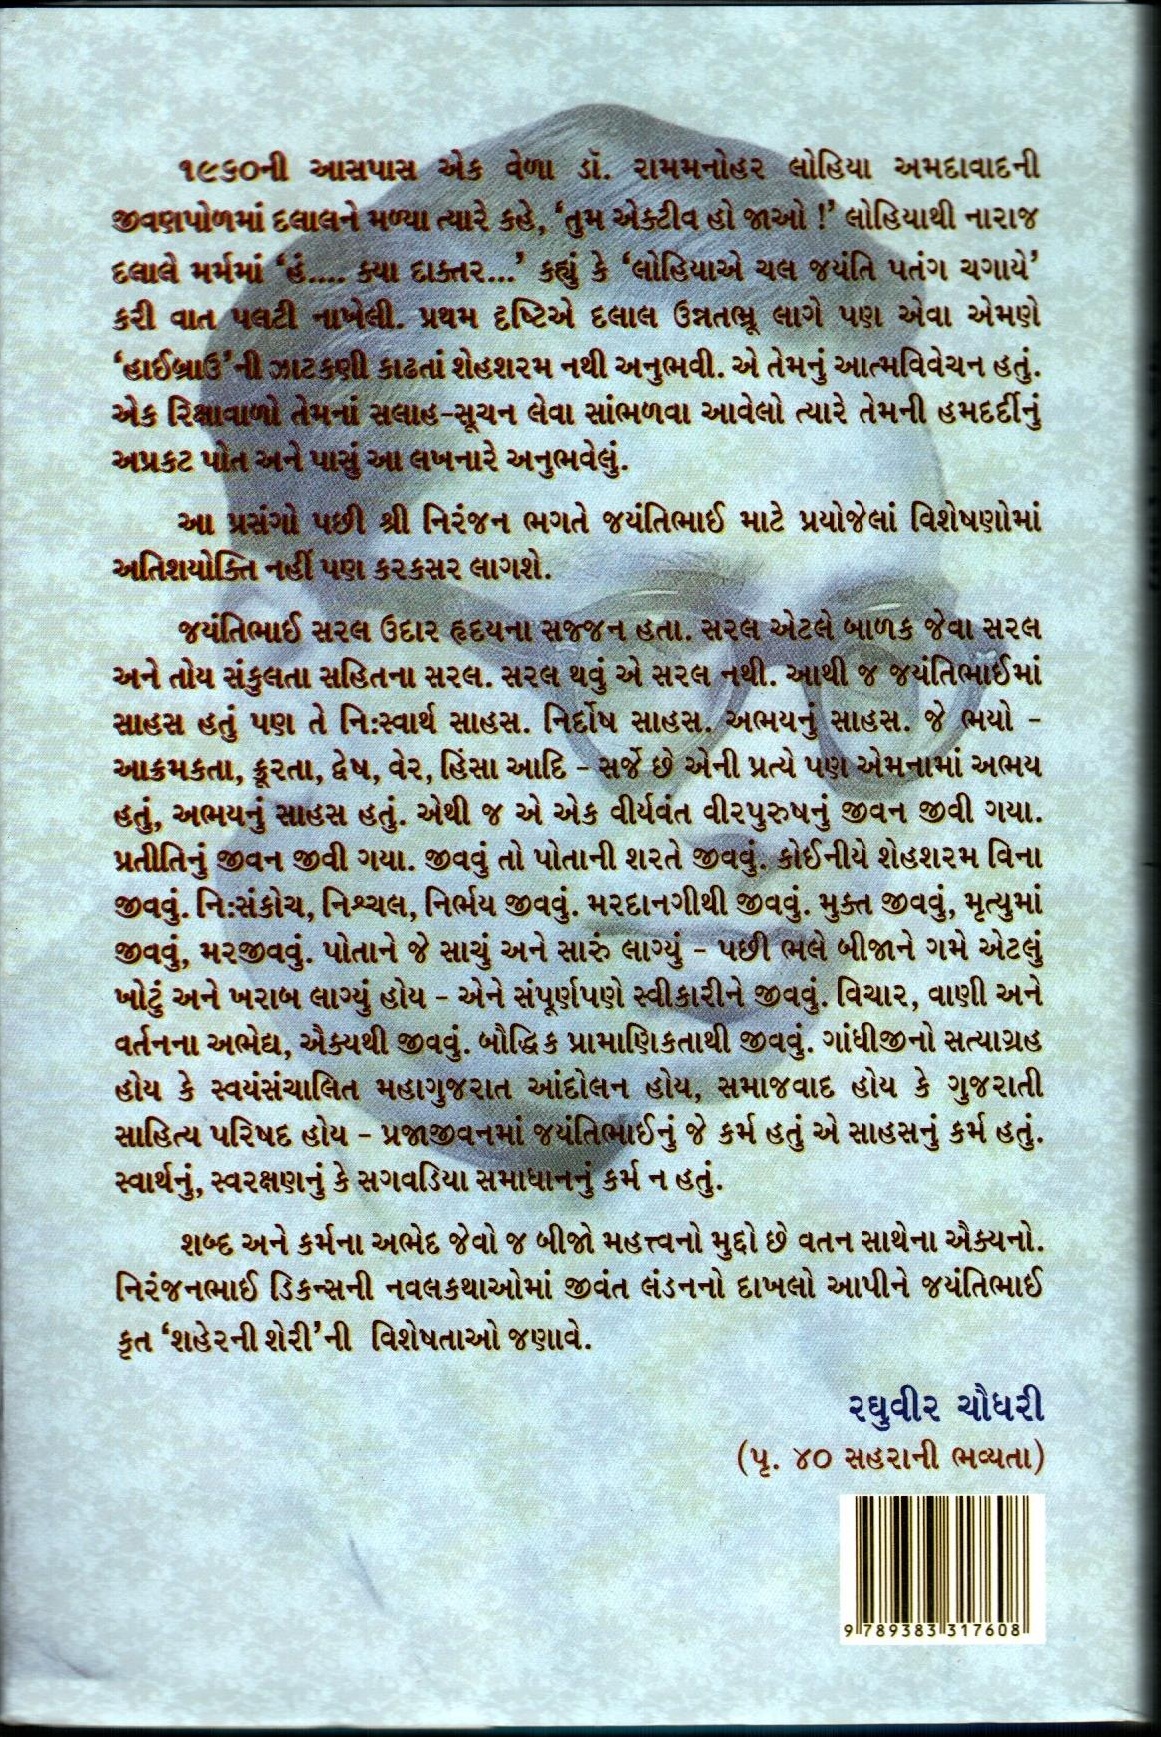 ૧૯૬૦ની આસપાસ એક વેળા ડૉ. રામમનોહર લોહિયા અમદાવાદની
જીવણપોળમાં દલાલને મળ્યા ત્યારે કહે, ‘તુમ એક્ટીવ હો જાઓ !’ લોહિયાથી નારાજ
દલાલે મર્મમાં ‘હં.... ક્યા દાક્તર...’ કહ્યું કે ‘લોહિયાએ ચલ જયંતિ પતંગ ચગાયે’
કરી વાત પલટી નાખેલી. પ્રથમ દૃષ્ટિએ દલાલ ઉન્નતભ્રૂ લાગે પણ એવા એમણે
‘હાઈબ્રાઉ’ની ઝાટકણી કાઢતાં શેહશરમ નથી અનુભવી. એ તેમનું આત્મવિવેચન હતું.
એક રિક્ષાવાળો તેમનાં સલાહ-સૂચન લેવા સાંભળવા આવેલો ત્યારે તેમની હમદર્દીનું
અપ્રકટ પોત અને પાસું આ લખનારે અનુભવેલું.
આ પ્રસંગો પછી શ્રી નિરંજન ભગતે જયંતિભાઈ માટે પ્રયોજેલાં વિશેષણોમાં
અતિશયોક્તિ નહીં પણ કરકસર લાગશે.
જયંતિભાઈ સરલ ઉદાર હૃદયના સજ્જન હતા. સરલ એટલે બાળક જેવા સરલ
અને તોય સંકુલતા સહિતના સરલ. સરલ થવું એ સરલ નથી. આથી જ જયંતિભાઈમાં
સાહસ હતું પણ તે નિ:સ્વાર્થ સાહસ. નિર્દોષ સાહસ. અભયનું સાહસ. જે ભયો –
આક્રમકતા, ક્રૂરતા, દ્વેષ, વેર, હિંસા આદિ – સર્જે છે એની પ્રત્યે પણ એમનામાં અભય
હતું, અભયનું સાહસ હતું. એથી જ એ એક વીર્યવંત વીરપુરુષનું જીવન જીવી ગયા.
પ્રતીતિનું જીવન જીવી ગયા. જીવવું તો પોતાની શરતે જીવવું. કોઈનીયે શેહશરમ વિના
જીવવું. નિ:સંકોચ, નિશ્ચલ, નિર્ભય જીવવું. મરદાનગીથી જીવવું. મુક્ત જીવવું, મૃત્યુમાં
જીવવું, મરજીવવું. પોતાને જે સાચું અને સારું લાગ્યું – પછી ભલે બીજાને ગમે એટલું
ખોટું અને ખરાબ લાગ્યું હોય – એને સંપૂર્ણપણે સ્વીકારીને જીવવું. વિચાર, વાણી અને
વર્તનના અભેદ્ય, ઐક્યથી જીવવું. બૌદ્ધિક પ્રામાણિકતાથી જીવવું. ગાંધીજીનો સત્યાગ્રહ
હોય કે સ્વયંસંચાલિત મહાગુજરાત આંદોલન હોય, સમાજવાદ હોય કે ગુજરાતી
સાહિત્ય પરિષદ હોય – પ્રજાજીવનમાં જયંતિભાઈનું જે કર્મ હતું એ સાહસનું કર્મ હતું.
સ્વાર્થનું, સ્વરક્ષણનું કે સગવડિયા સમાધાનનું કર્મ ન હતું.
શબ્દ અને કર્મના અભેદ જેવો જ બીજો મહત્ત્વનો મુદ્દો છે વતન સાથેના ઐક્યનો.
નિરંજનભાઈ ડિકન્સની નવલકથાઓમાં જીવંત લંડનનો દાખલો આપીને જયંતિભાઈ
કૃત ‘શહેરની શેરી’ની વિશેષતાઓ જણાવે.
રઘુવીર ચૌધરી
(પૃ. ૪૦ સહરાની ભવ્યતા)
9 789383 317608